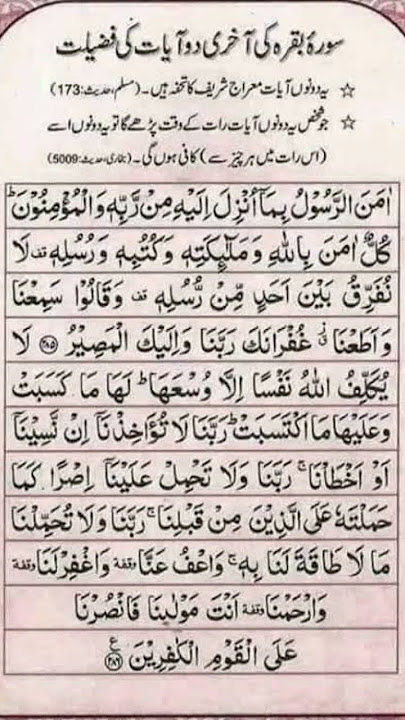 سورۂ بقرہ کی آخری دو آیات کی فضیلت
☆ یہ دونوں آیات معراج شریف کا تحفہ ہیں۔ (مسلم، حدیث:173)
☆ جو شخص یہ دونوں آیات رات کے وقت پڑھے گا تو یہ دونوں اسے
(اس رات میں ہر چیز سے) کافی ہوں گی۔ (بخاری، حدیث:5009)
اٰمَنَ الرَّسُوْلُ بِمَآ اُنْزِلَ اِلَيْهِ مِنْ رَّبِّهٖ وَالْمُؤْمِنُوْنَ ؕ
كُلٌّ اٰمَنَ بِاللّٰهِ وَمَلٰٓئِكَتِهٖ وَكُتُبِهٖ وَرُسُلِهٖ قف لَا
نُفَرِّقُ بَيْنَ اَحَدٍ مِّنْ رُّسُلِهٖ قف وَقَالُوْا سَمِعْنَا
وَاَطَعْنَا ق غُفْرَانَكَ رَبَّنَا وَاِلَيْكَ الْمَصِيْرُ ﴿۲۸۵﴾ لَا
يُكَلِّفُ اللّٰهُ نَفْسًا اِلَّا وُسْعَهَا ؕ لَهَا مَا كَسَبَتْ
وَعَلَيْهَا مَا اكْتَسَبَتْ ؕ رَبَّنَا لَا تُؤَاخِذْنَآ اِنْ نَّسِيْنَآ
اَوْ اَخْطَاْنَا ۚ رَبَّنَا وَلَا تَحْمِلْ عَلَيْنَآ اِصْرًا كَمَا
حَمَلْتَهٗ عَلَى الَّذِيْنَ مِنْ قَبْلِنَا ۚ رَبَّنَا وَلَا تُحَمِّلْنَا
مَا لَا طَاقَةَ لَنَا بِهٖ ۚ وَاعْفُ عَنَّا وقفة وَاغْفِرْ لَنَا وقفة
وَارْحَمْنَا وقفة اَنْتَ مَوْلٰىنَا فَانْصُرْنَا
عَلَى الْقَوْمِ الْكٰفِرِيْنَ ﴿۲۸۶﴾ ع